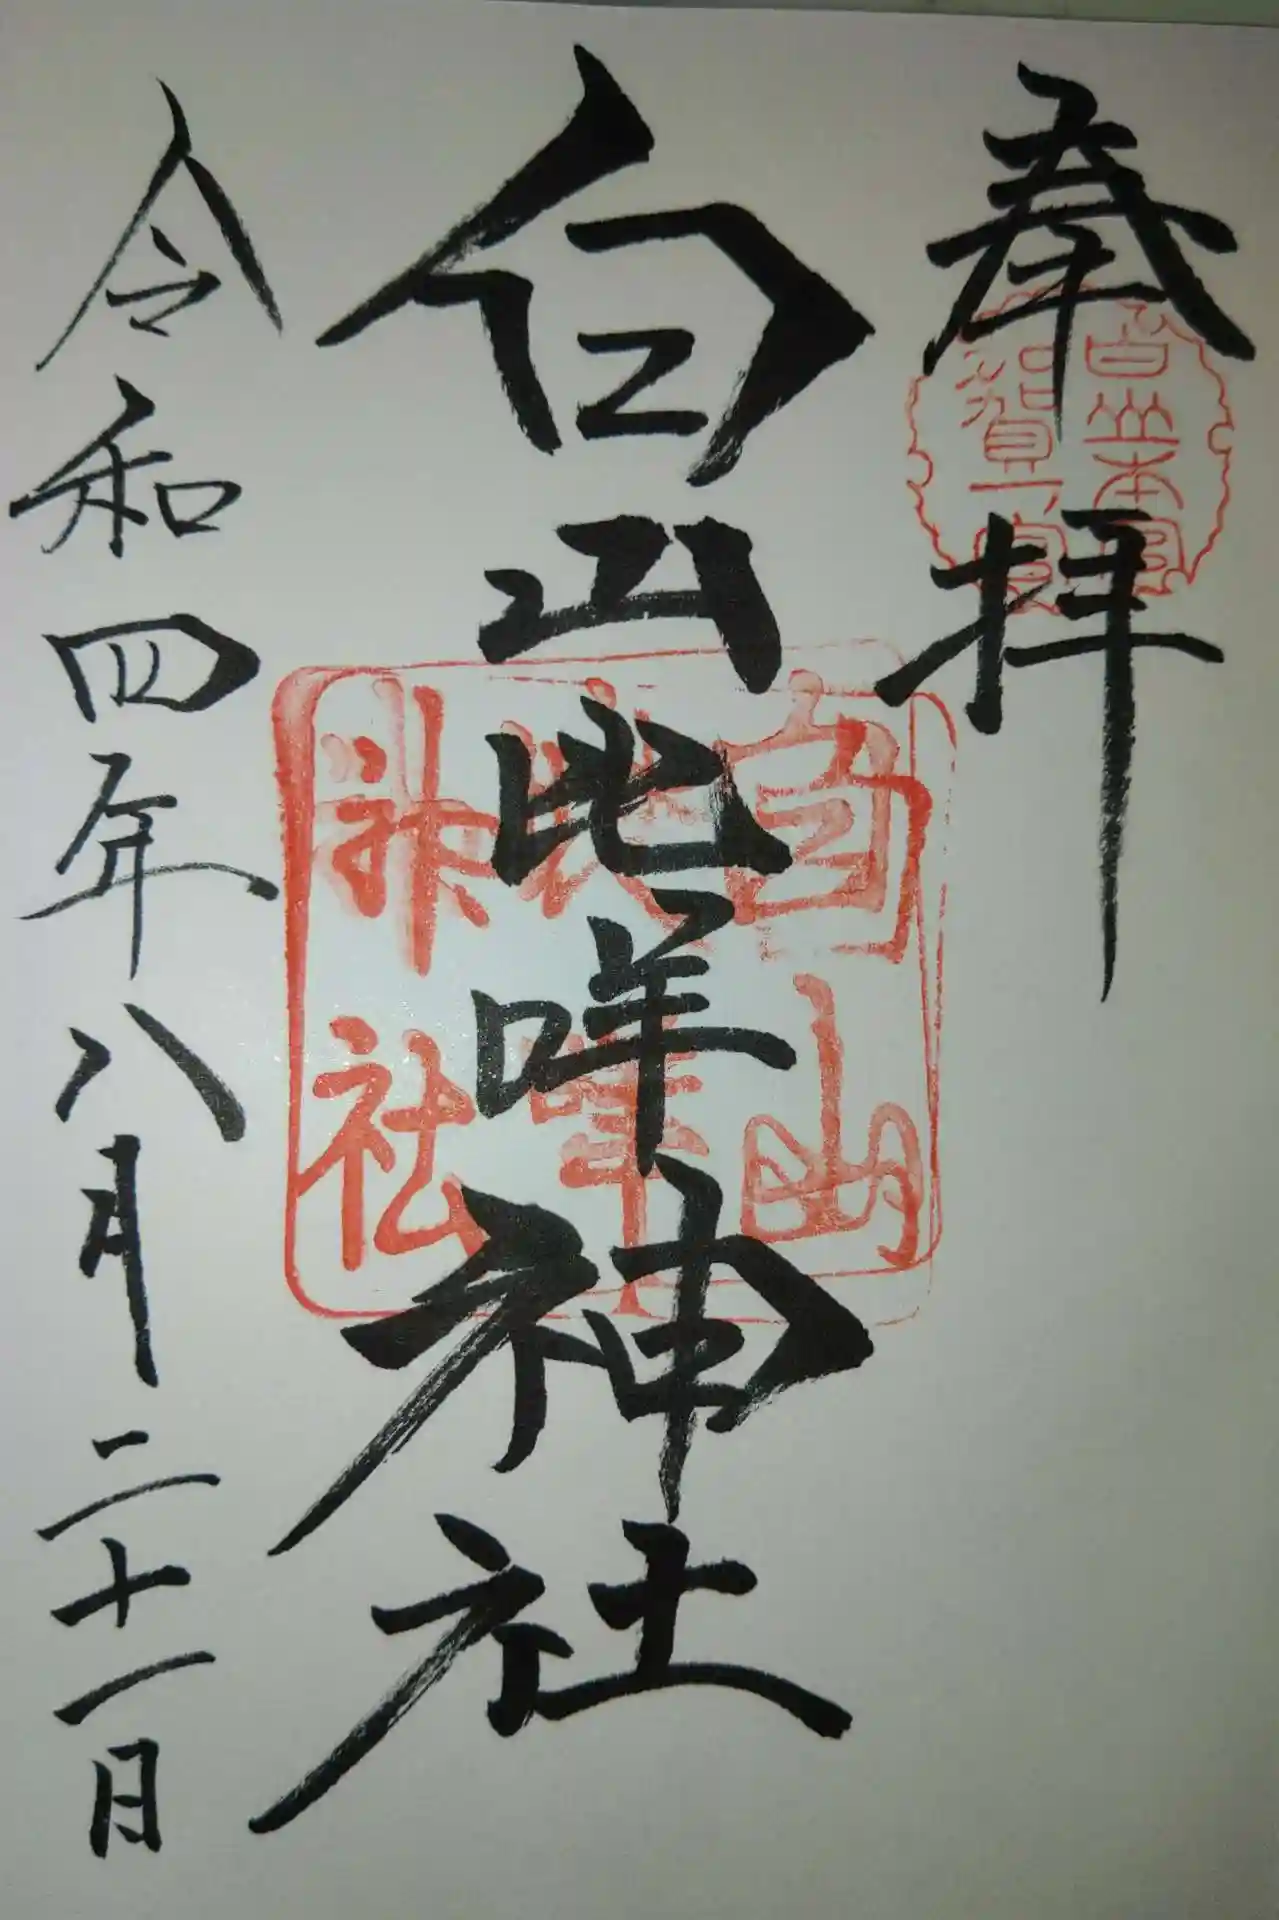 奉拝
白山本宮
加賀一宮
白山比咩神社
白山
比咩
神社
令和四年八月二十一日